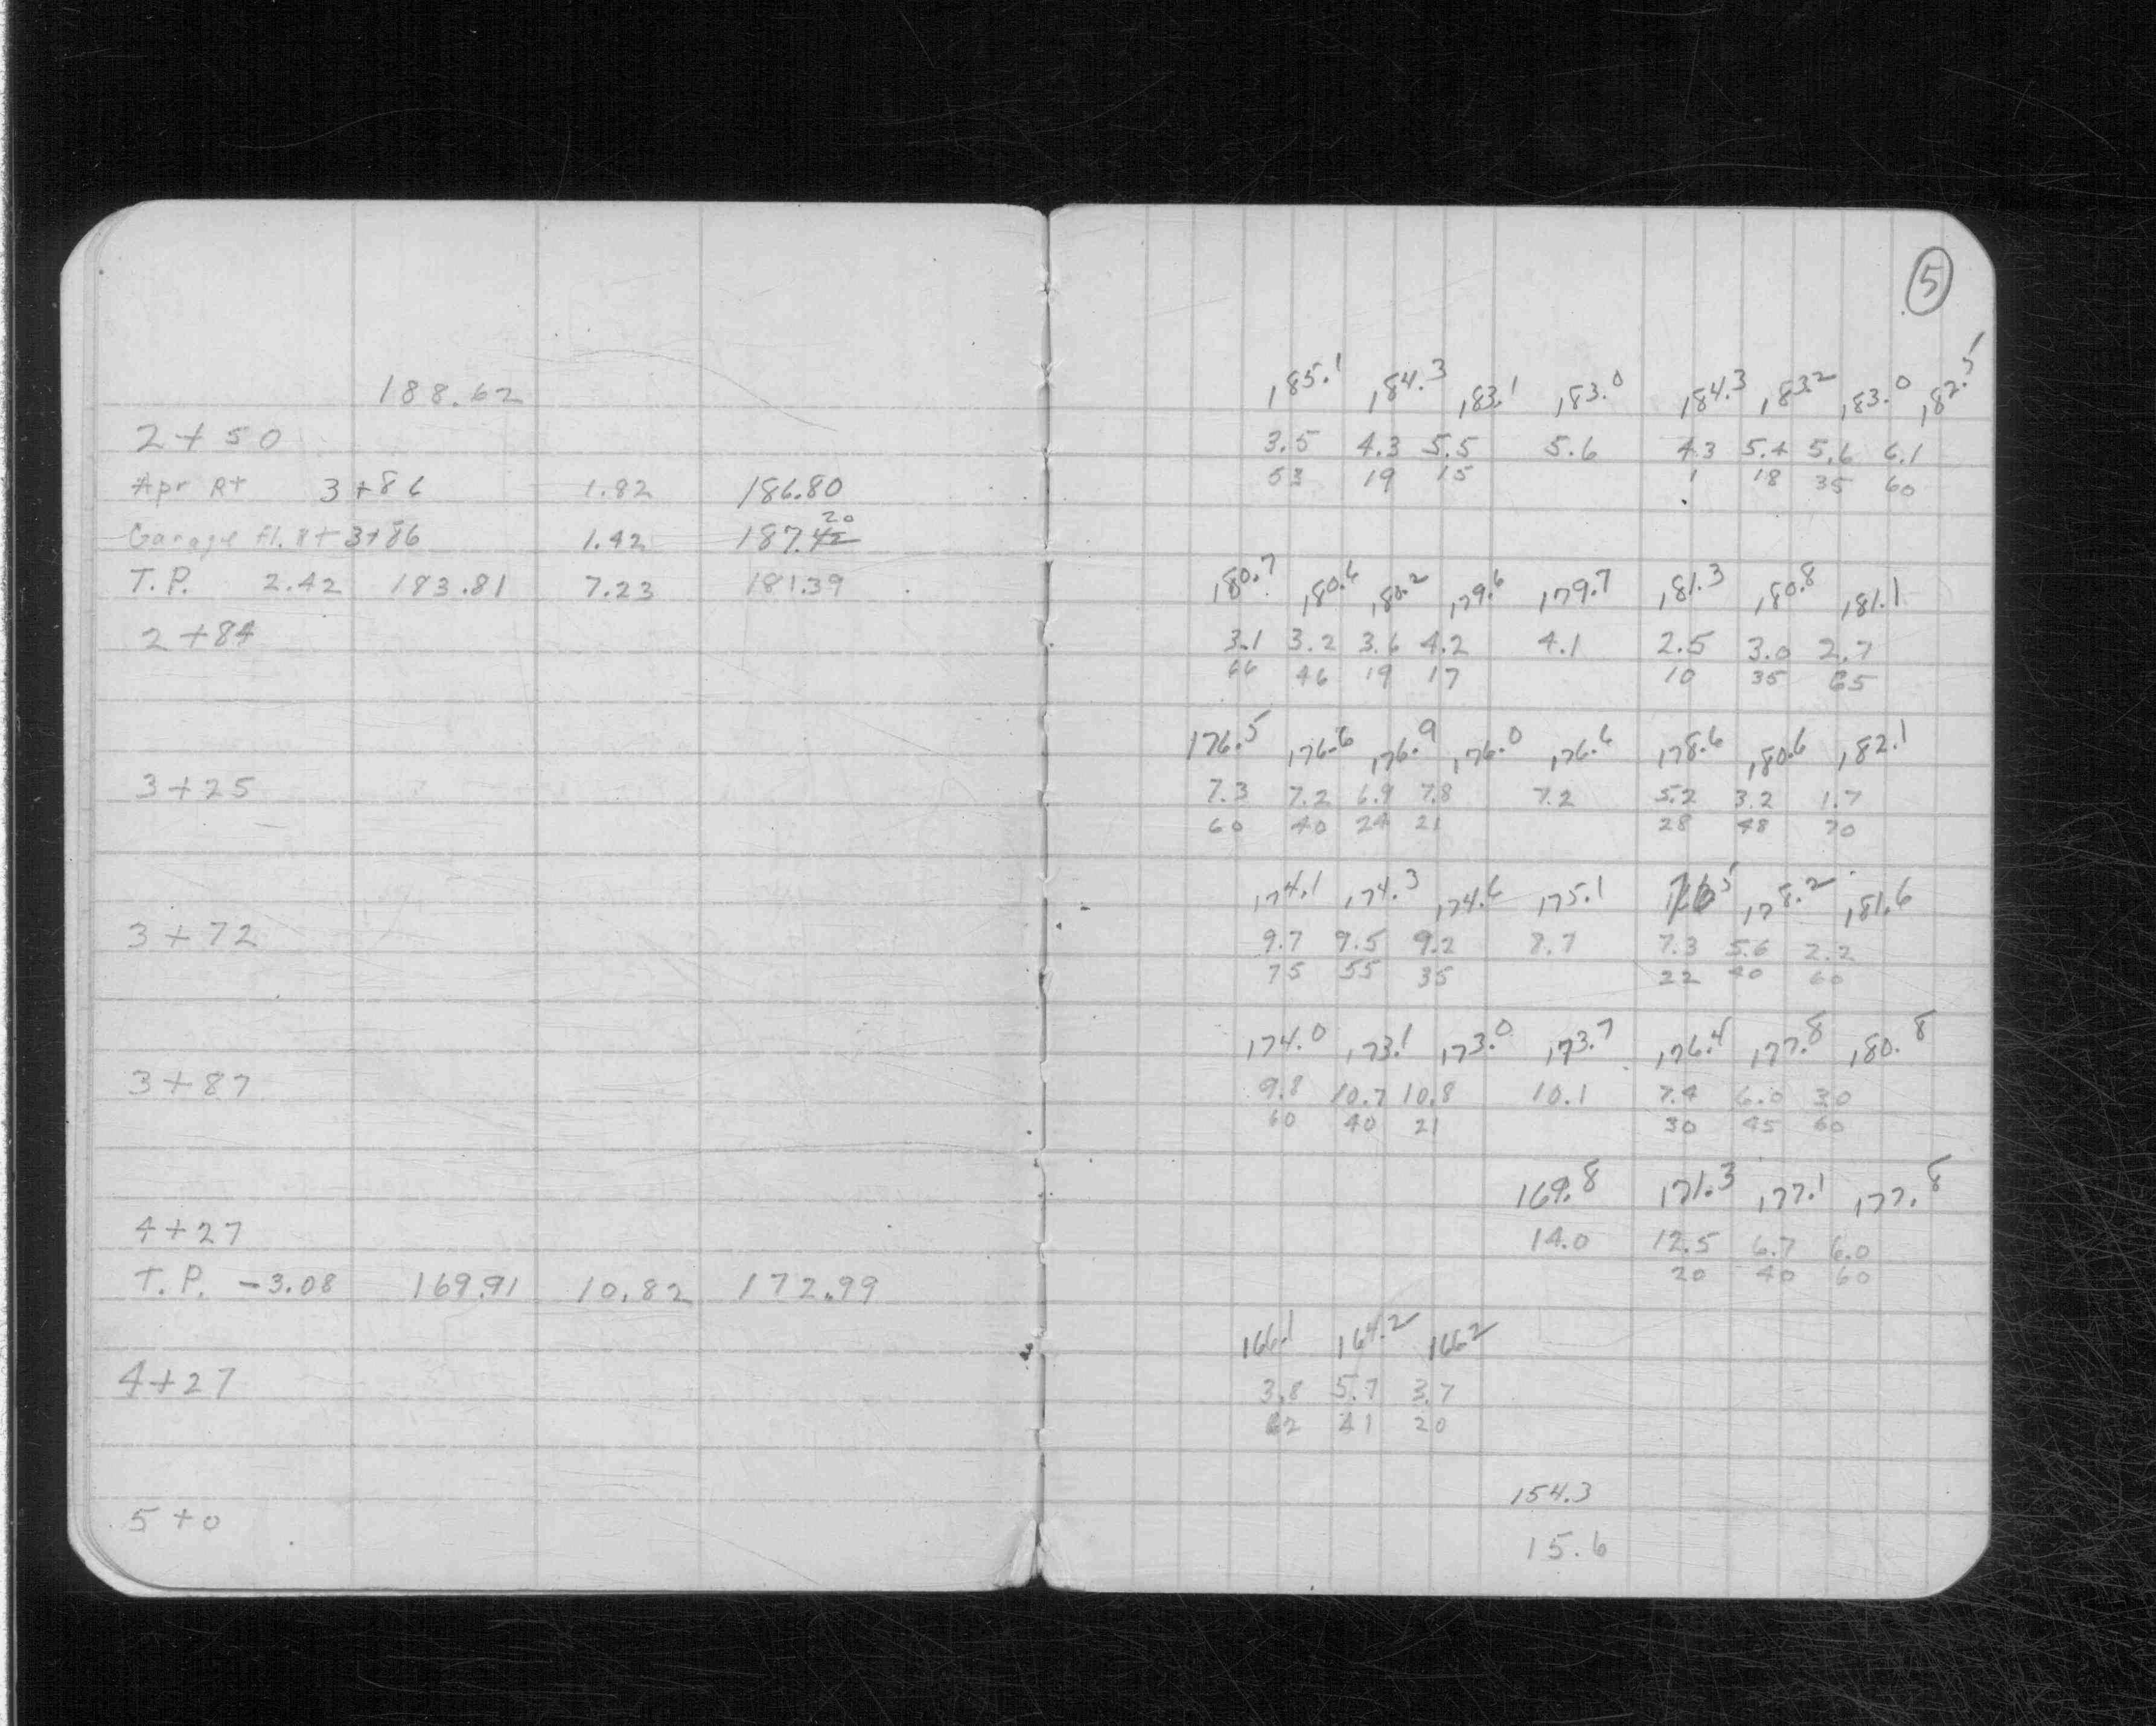 5
188.62
185.1 184.3 183.1 183.0 184.3 183.2 183.0 182.5
2+50 3.5 4.3 5.5 5.6 4.3 5.4 5.6 6.1
53 19 15 1 18 35 60
Apr Rt 3+86 1.82 186.80
20
Garage fl. Rt 3+86 1.42 187.42
180.7 180.6 180.2 179.6 179.7 181.3 180.8 181.1
T.P. 2.42 183.81 7.23 181.39
2+84 3.1 3.2 3.6 4.2 4.1 2.5 3.0 2.7
66 46 19 17 10 35 65
176.5 176.6 176.9 176.0 176.6 178.6 180.6 182.1
3+25 7.3 7.2 6.9 7.8 7.2 5.2 3.2 1.7
60 40 24 21 28 48 70
174.1 174.3 174.6 175.1 176.5 178.2 181.6
3+72 9.7 9.5 9.2 8.7 7.3 5.6 2.2
75 55 35 22 40 60
174.0 173.1 173.0 173.7 176.4 177.8 180.8
3+87 9.8 10.7 10.8 10.1 7.4 6.0 3.0
60 40 21 30 45 60
169.8 171.3 177.1 177.8
4+27 14.0 12.5 6.7 6.0
20 40 60
T.P. -3.08 169.91 10.82 172.99
166.1 164.2 166.2
4+27 3.8 5.7 3.7
62 41 20
154.3
5+0 15.6